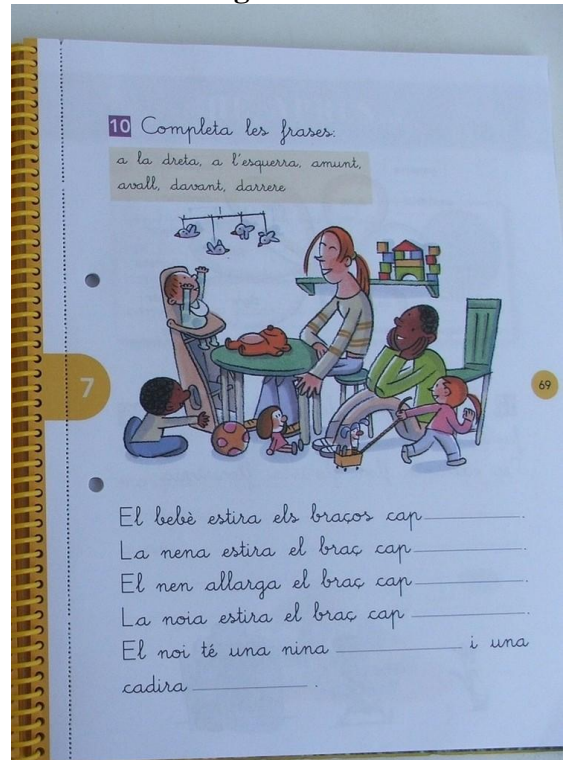 10 Completa les frases:
a la dreta, a l'esquerra, amunt,
avall, davant, darrere
7
69
El bebè estira els braços cap ________.
La nena estira el braç cap ________.
El nen allarga el braç cap ________.
La noia estira el braç cap ________.
El noi té una nina ________ i una
cadira ________.